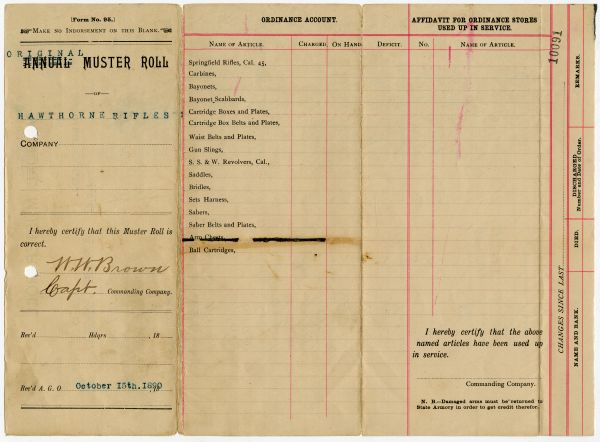 (Form No. 95.)
MAKE NO INDORSEMENT ON THIS BLANK.
ORIGINAL
ANNUAL MUSTER ROLL
—OF—
HAWTHORNE RIFLES
COMPANY
I hereby certify that this Muster Roll is
correct.
W. W. Brown
Capt. Commanding Company.
Rec'd Hdqrs , 18
Rec'd A. G. O October 15th. 1890
ORDINANCE ACCOUNT.
NAME OF ARTICLE. CHARGED. ON HAND. DEFICIT.
Springfield Rifles, Cal. 45,
Carbines,
Bayonets,
Bayonet Scabbards,
Cartridge Boxes and Plates,
Cartridge Box Belts and Plates,
Waist Belts and Plates,
Gun Slings,
S. S. & W. Revolvers, Cal.,
Saddles,
Bridles,
Sets Harness,
Sabers,
Saber Belts and Plates,
Arm Chests,
Ball Cartridges,
AFFIDAVIT FOR ORDINANCE STORES
USED UP IN SERVICE.
No. NAME OF ARTICLE.
I hereby certify that the above
named articles have been used up
in service.
Commanding Company.
N. B.—Damaged arms must be returned to
State Armory in order to get credit therefor.
10091
CHANGES SINCE LAST
NAME AND RANK.
DIED.
DISCHARGED
Number and Date of Order.
REMARKS.